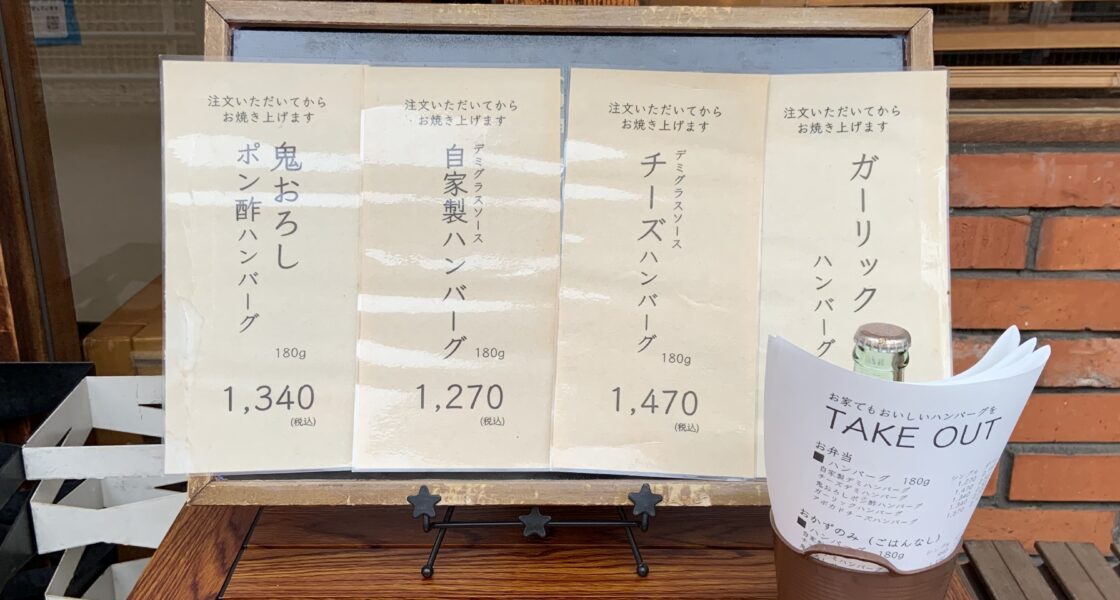 注文いただいてから
お焼き上げます
鬼おろし
ポン酢ハンバーグ
180g
1,340
(税込)
注文いただいてから
お焼き上げます
デミグラスソース
自家製ハンバーグ
180g
1,270
(税込)
注文いただいてから
お焼き上げます
デミグラスソース
チーズハンバーグ
180g
1,470
(税込)
注文いただいてから
お焼き上げます
ガーリック
ハンバーグ
お家でもおいしいハンバーグを
TAKE OUT
お弁当
■ハンバーグ 180g
自家製デミハンバーグ 1,270
チーズデミハンバーグ 1,470
鬼おろしポン酢ハンバーグ 1,340
ガーリックハンバーグ
アボカドチーズハンバーグ
おかずのみ (ごはんなし)
■ハンバーグ 180g